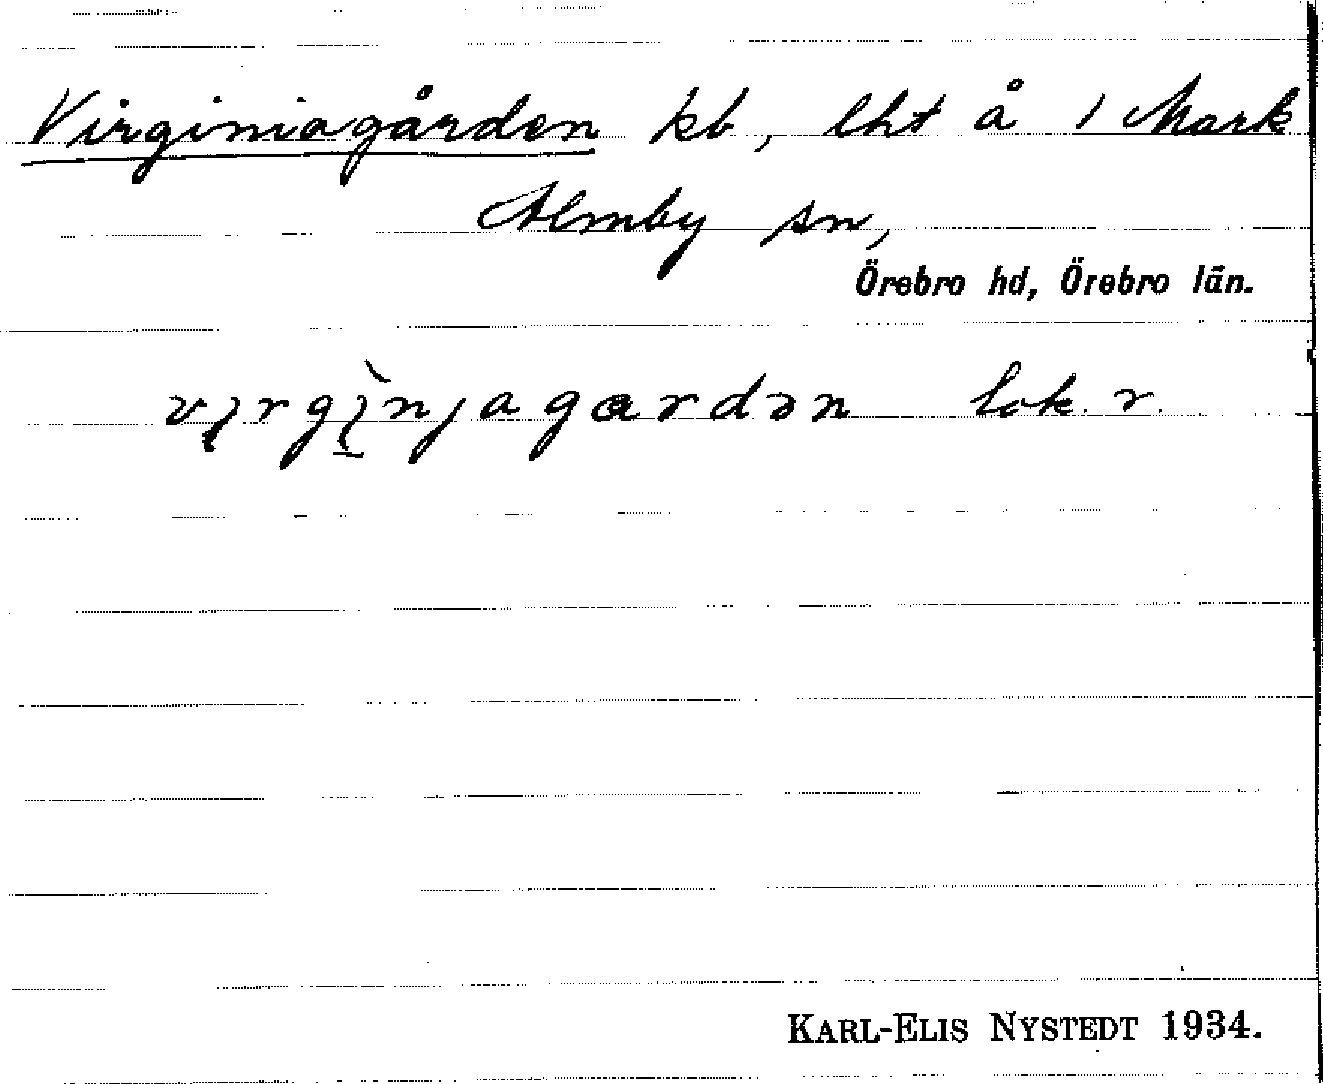 Virginiagården kb, lht å 1 Mark
Almby sn,
Örebro hd, Örebro län.
vɩrgɩ̀njagardən lok. r.
KARL-ELIS NYSTEDT 1934.